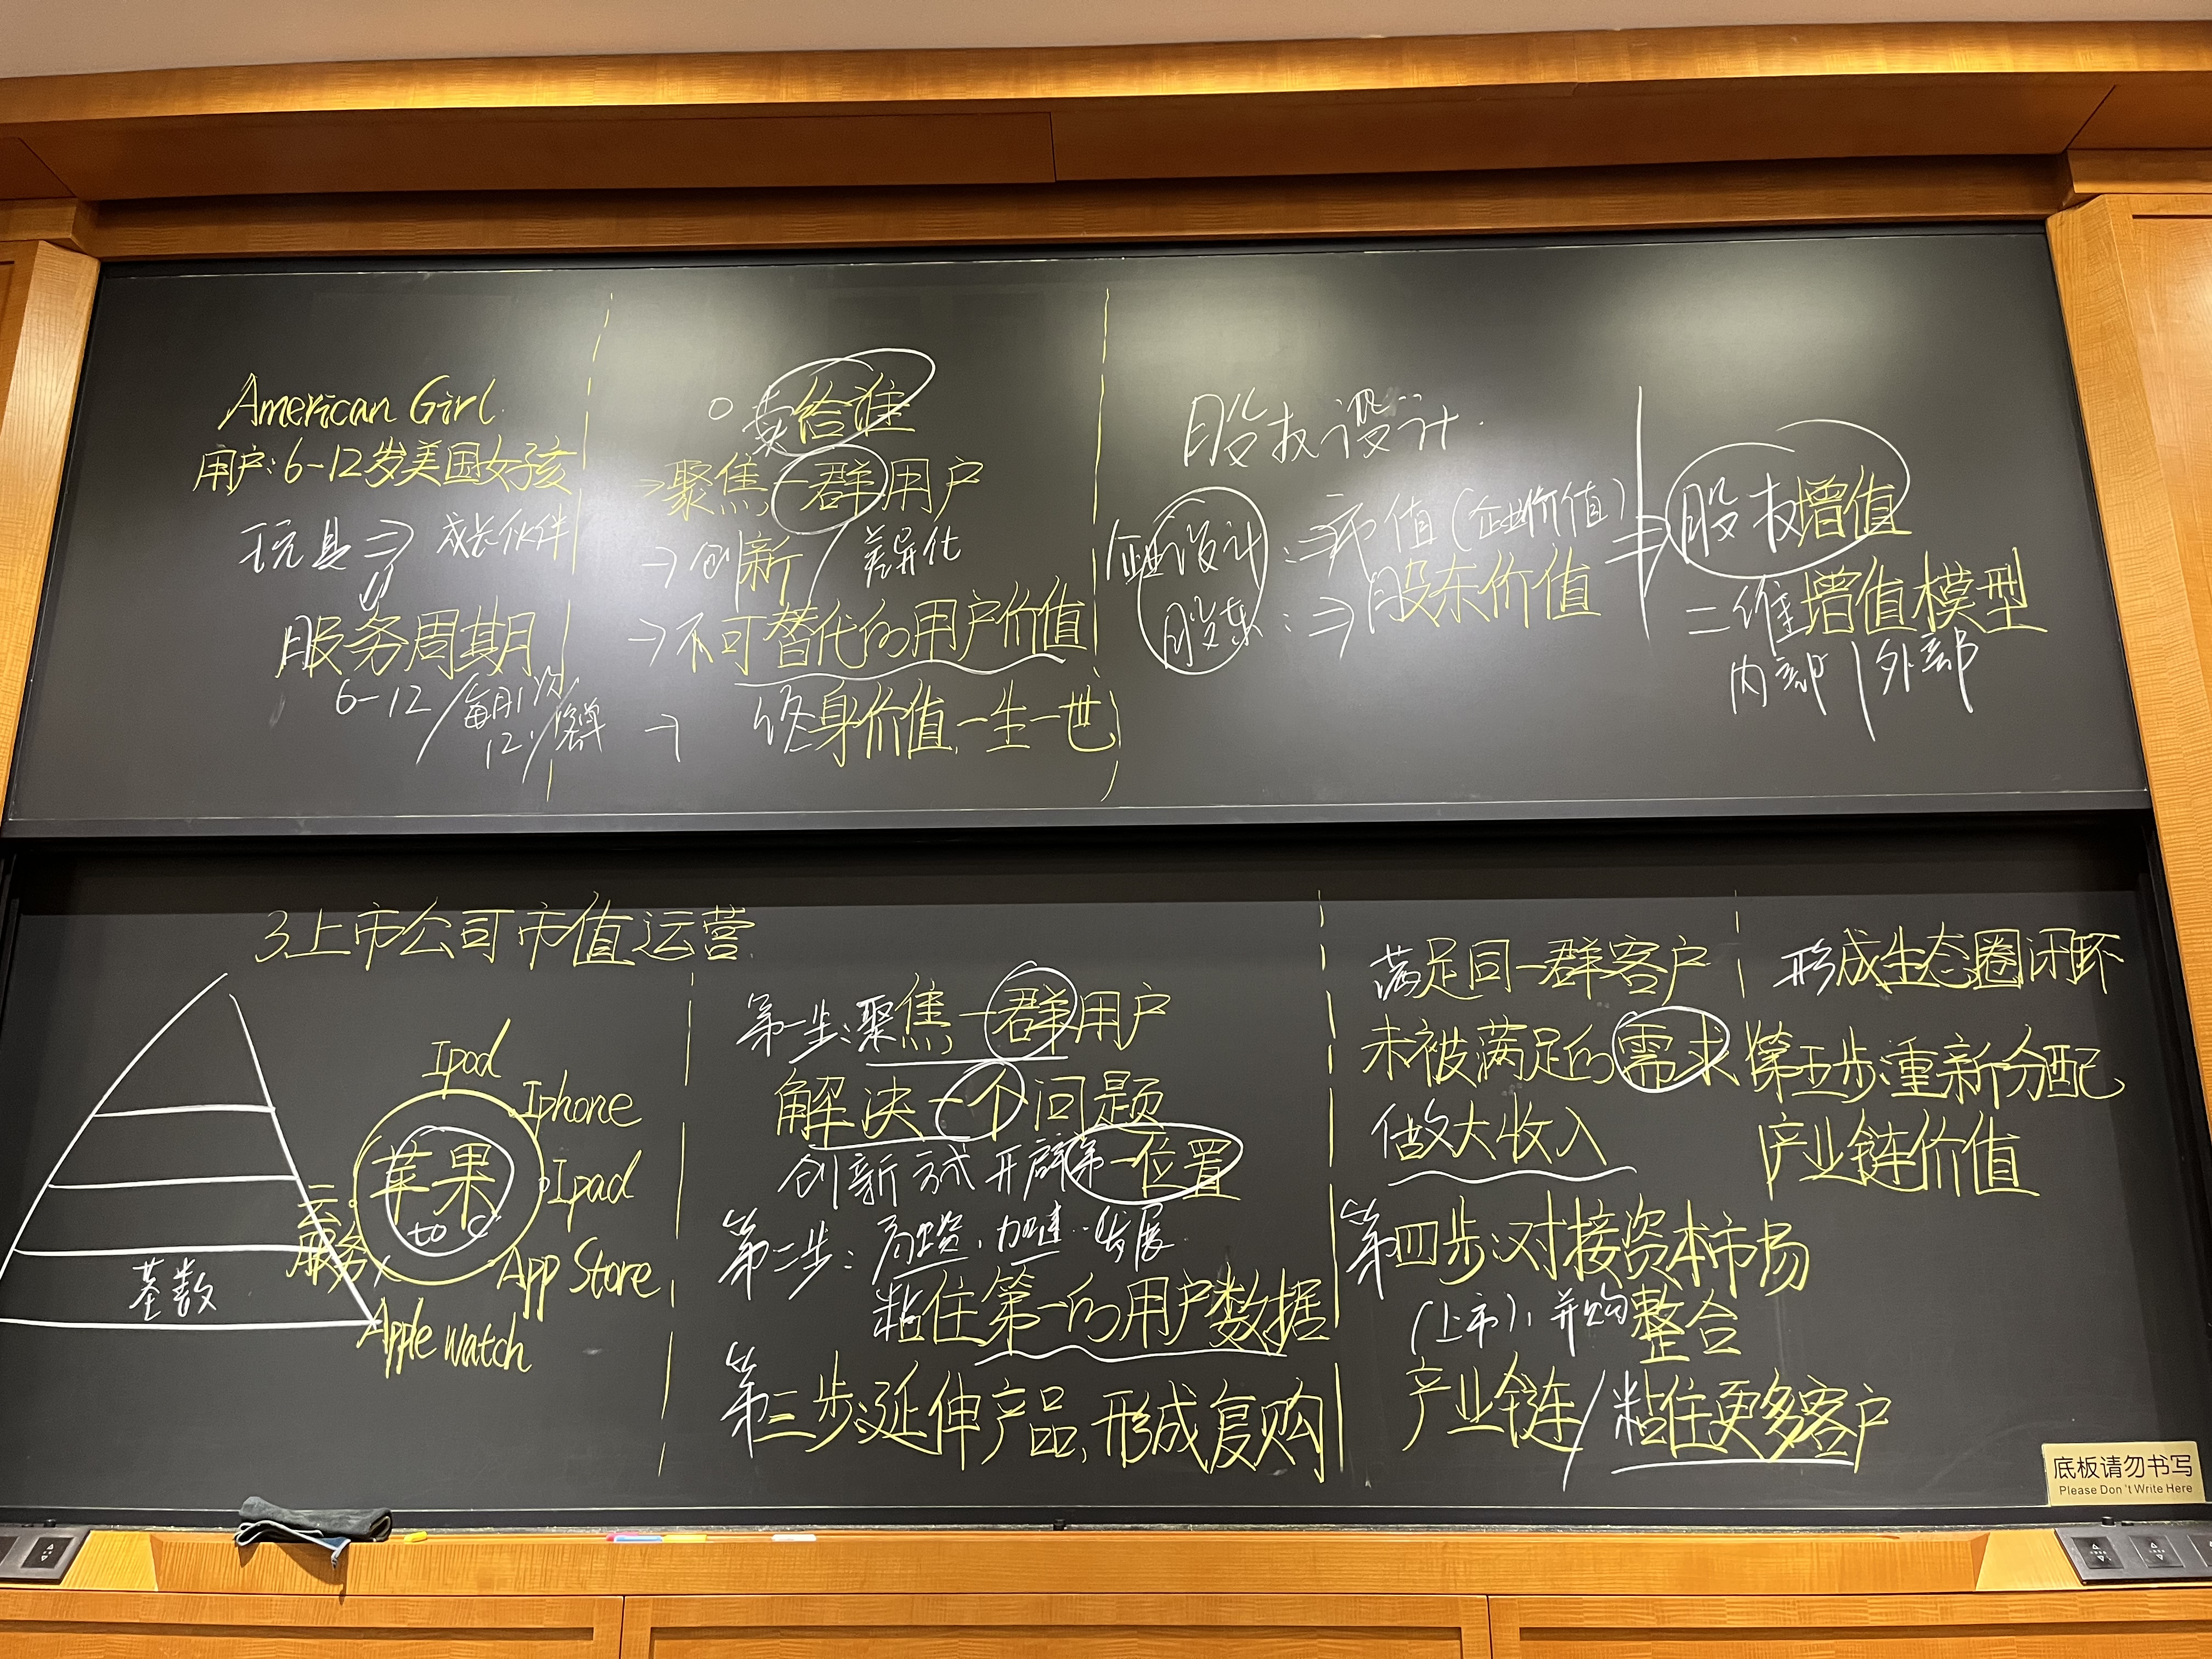 American Girl
用户:6-12岁美国女孩
玩具⇒成长伙伴
⇓
服务周期
6-12/每月1份
12
○卖给谁
→聚焦一群用户
→创新/差异化
→不可替代的用户价值
→终身价值.一生一世
股权设计.
设计:⇒市值(企业价值)
股东:⇒股东价值
⇒股权增值
二维增值模型
内部/外部
3上市公司市值运营
基数
Ipod
Iphone
Ipad
App Store
Apple watch
云
服务
苹果
to C
第一步:聚焦一群用户
解决一个问题
创新方式开辟第一位置
第二步:融资,加速发展
粘住第一的用户数据
第三步:延伸产品,形成复购
满足同一群客户
未被满足的需求
做大收入
第四步:对接资本市场
(上市),并购整合
产业链/粘住更多客户
形成生态圈闭环
第五步:重新分配
产业链价值
底板请勿书写
Please Don't Write Here